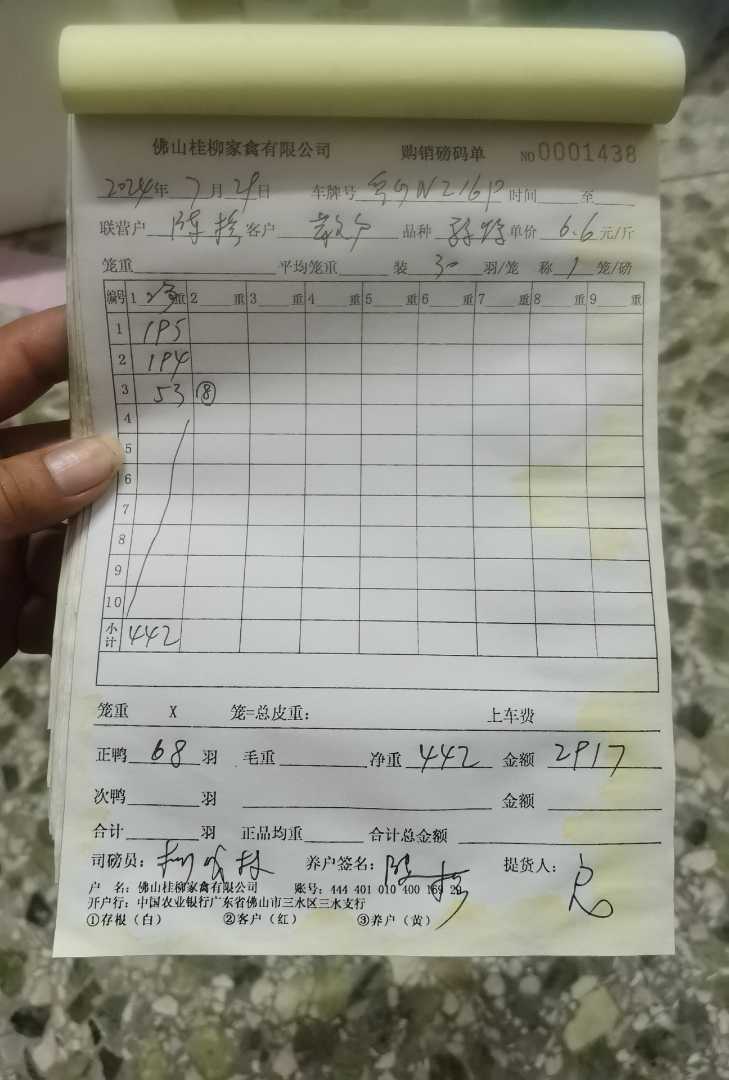 佛山桂柳家禽有限公司 购销磅码单 NO 0001438
2024年 7月 29日 车牌号 N216P 时间 至
联营户 陈 客户 散户 品种 单价 6.6 元/斤
笼重 平均笼重 装 30 羽/笼 称 1 笼/磅
编号 1 重 2 重 3 重 4 重 5 重 6 重 7 重 8 重 9 重
1 195
2 194
3 53 ⑧
4
5
6
7
8
9
10
小计 442
笼重 X 笼=总皮重: 上车费
正鸭 68 羽 毛重 净重 442 金额 2917
次鸭 羽 金额
合计 羽 正品均重 合计总金额
司磅员: 养户签名: 陈 提货人:
户 名: 佛山桂柳家禽有限公司 账号: 444 401 010 400 169 29
开户行: 中国农业银行广东省佛山市三水区三水支行
①存根(白) ②客户(红) ③养户(黄)